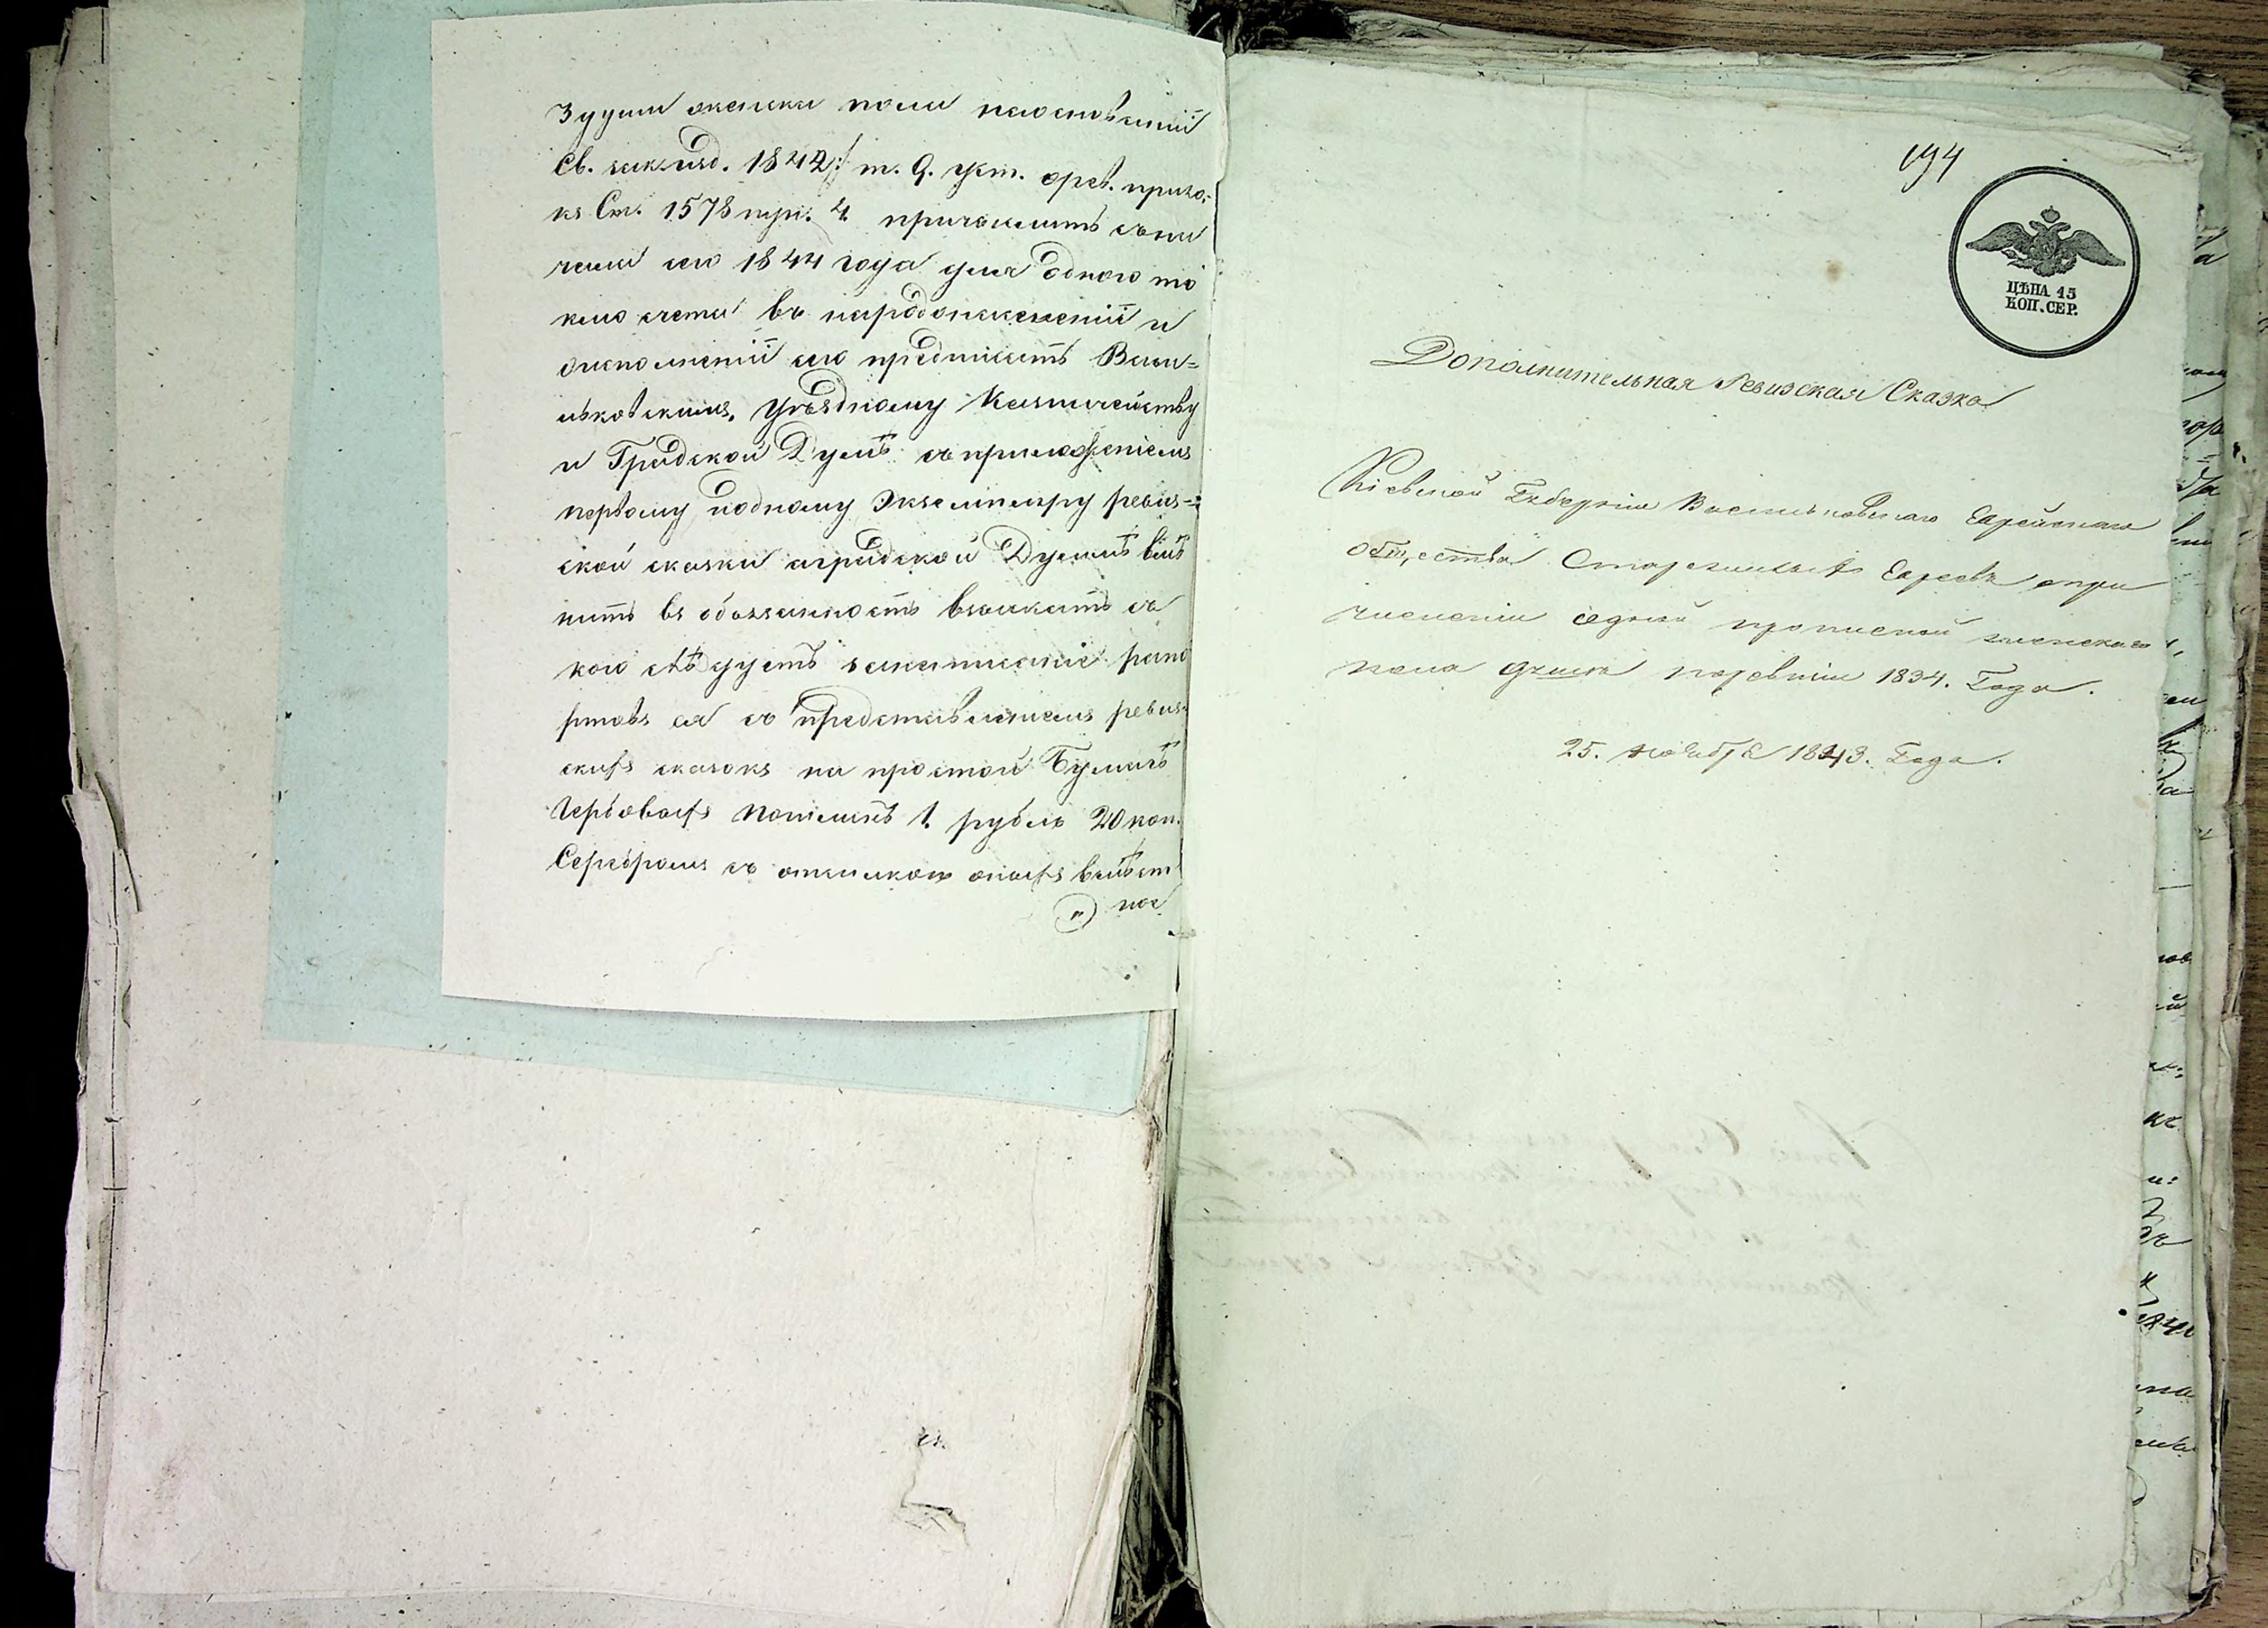 3 души женска пола на основаніи
Св. зак. изд. 1842/: т. 9. уст. о рев. прило:
къ Ст. 1578 пун. 4 причислить съ на
чала сего 1844 года для одного то
кмо счета въ народонаселеніи и
о исполненіи сего предписать Василь=
ьковскимъ, Уѣздному Казначейству
и Градской Думѣ съ приложеніемъ
первому по одному Экземпляру ревиз=
ской сказки а градской Думѣ вмѣ
нить въ обязанность взыскать съ
кого слѣдуетъ за написаніе рапо
ртовъ ея съ представленіемъ ревиз=
скихъ сказокъ на простой Бумагѣ
Гербовыхъ пошлинъ 1. рубль 20 коп.
Серебромъ съ отсылкою оныхъ вмѣст
ное
194
ЦѢНА 15
КОП. СЕР.
Дополнительная Ревизская Сказка
Кіевской Губерніи Васильковскаго Еврейскаго
общества Старозаконныхъ Евреевъ о при
численіи одной прописной женскаго
пола души по ревизіи 1834. Года.
25. ноября 1843. Года.